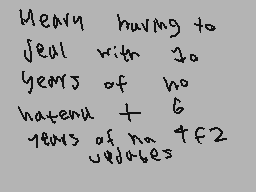 Meavy having to
deal with 10
years of no
hatena + 6
years of no TF2
updates